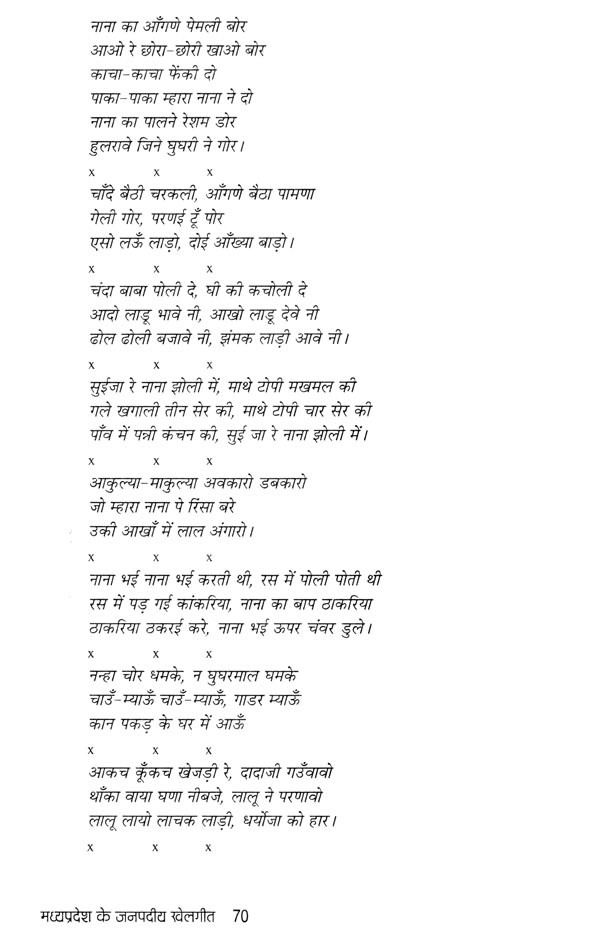 नाना का आँगणे पेमली बोर
आओ रे छोरा-छोरी खाओ बोर
काचा-काचा फेंकी दो
पाका-पाका म्हारा नाना ने दो
नाना का पालने रेशम डोर
हुलरावे जिने घुघरी ने गोर।
x x x
चाँदे बैठी चरकली, आँगणे बैठा पामणा
गेली गोर, परणई टूँ पोर
एसो लऊँ लाड़ो, दोई आँख्या बाड़ो।
x x x
चंदा बाबा पोली दे, घी की कचोली दे
आदो लाडू भावे नी, आखो लाडू देवे नी
ढोल ढोली बजावे नी, झंमक लाड़ी आवे नी।
x x x
सुईजा रे नाना झोली में, माथे टोपी मखमल की
गले खगाली तीन सेर की, माथे टोपी चार सेर की
पाँव में पन्नी कंचन की, सुई जा रे नाना झोली में।
x x x
आकुल्या-माकुल्या अवकारो डबकारो
जो म्हारा नाना पे रिंसा बरे
उकी आखाँ में लाल अंगारो।
x x x
नाना भई नाना भई करती थी, रस में पोली पोती थी
रस में पड़ गई कांकरिया, नाना का बाप ठाकरिया
ठाकरिया ठकरई करे, नाना भई ऊपर चंवर डुले।
x x x
नन्हा चोर धमके, न घुघरमाल घमके
चाउँ-म्याऊँ चाउँ-म्याऊँ, गाडर म्याऊँ
कान पकड़ के घर में आऊँ
x x x
आकच कूँकच खेजड़ी रे, दादाजी गउँवावो
थाँका वाया घणा नीबजे, लालू ने परणावो
लालू लायो लाचक लाड़ी, धर्योजा को हार।
x x x
मध्यप्रदेश के जनपदीय खेलगीत 70